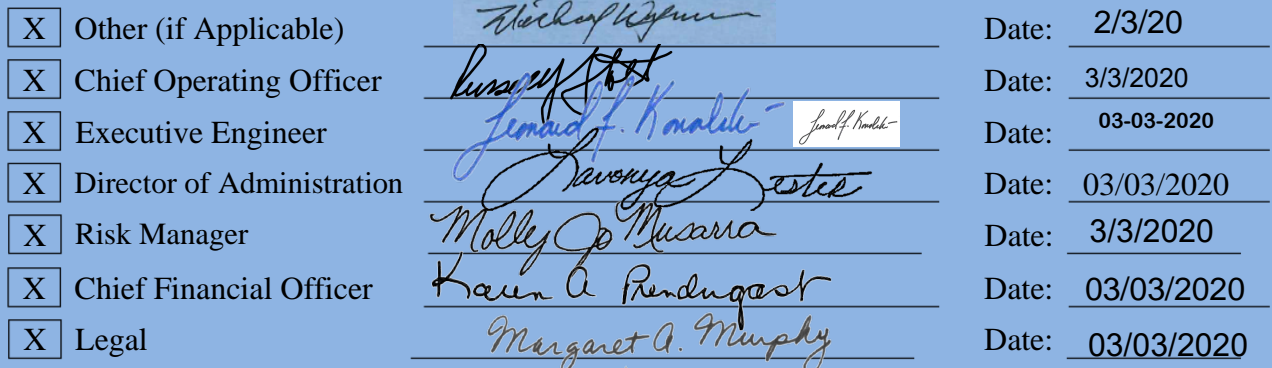 X Other (if Applicable) Michael Wynn Date: 2/3/20
X Chief Operating Officer Date: 3/3/2020
X Executive Engineer Leonard F. Kowalski Date: 03-03-2020
X Director of Administration Lavonya Lester Date: 03/03/2020
X Risk Manager Molly Jo Musarra Date: 3/3/2020
X Chief Financial Officer Karen A Prendergast Date: 03/03/2020
X Legal Margaret A. Murphy Date: 03/03/2020